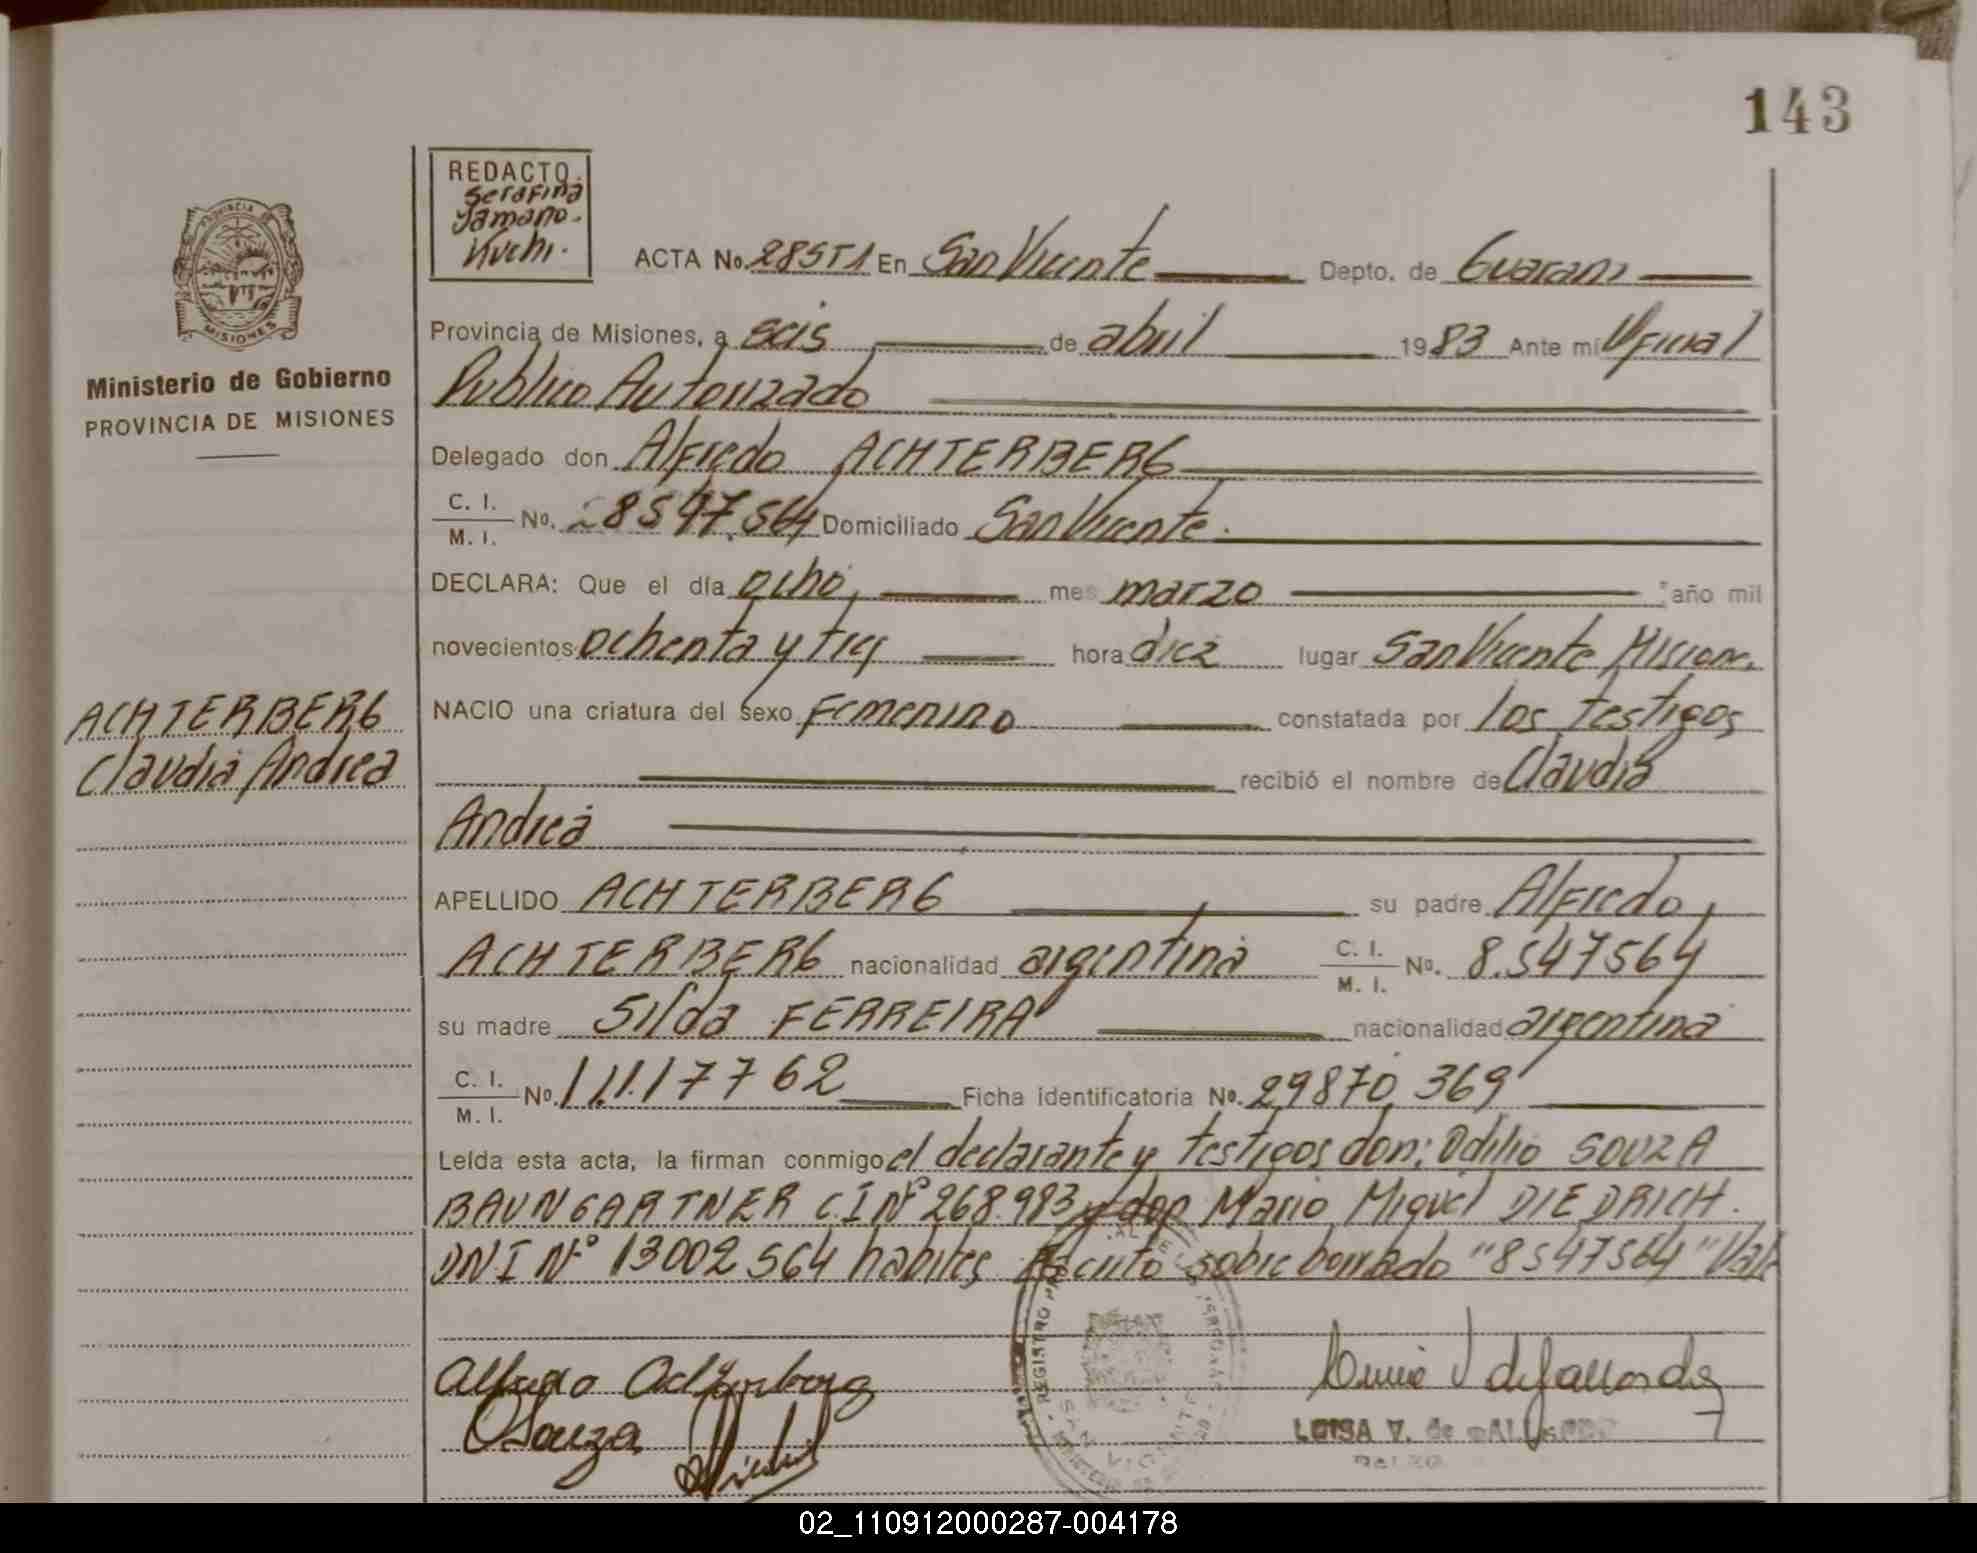 143
REDACTO
Serafina
Yamano-
Kuchi.
PROVINCIA DE
MISIONES
Ministerio de Gobierno
PROVINCIA DE MISIONES
ACTA No. 285T1 En San Vicente Depto. de Guarani
Provincia de Misiones, a seis de abril 1983 Ante mi Oficial
Publico Autorizado
Delegado don Alfredo ACHTERBERG
C. I.
M. I. No. 8547.564 Domiciliado San Vicente.
DECLARA: Que el día ocho, mes marzo año mil
novecientos ochenta y tres hora diez lugar San Vicente Misiones
ACHTERBERG
Claudia Andrea
NACIO una criatura del sexo Femenino constatada por los testigos
recibió el nombre de Claudia
Andrea
APELLIDO ACHTERBERG su padre Alfredo
ACHTERBERG nacionalidad argentina C. I. M. I. No. 8.547564
su madre Silda FERREIRA nacionalidad argentina
C. I.
M. I. No. 11.117762 Ficha identificatoria No. 29870369
Leída esta acta, la firman conmigo el declarante y testigos don: Odilio SOUZA
BAUNGARTNER C.I Nº 268.983 y don Mario Miguel DIEDRICH.
DNI Nº 13002564 habiles. Escrito sobre borrado "8547564" Vale
Alfredo Achterberg
OSouza
REGISTRO
SAN VICENTE
LUISA V. de
02_110912000287-004178